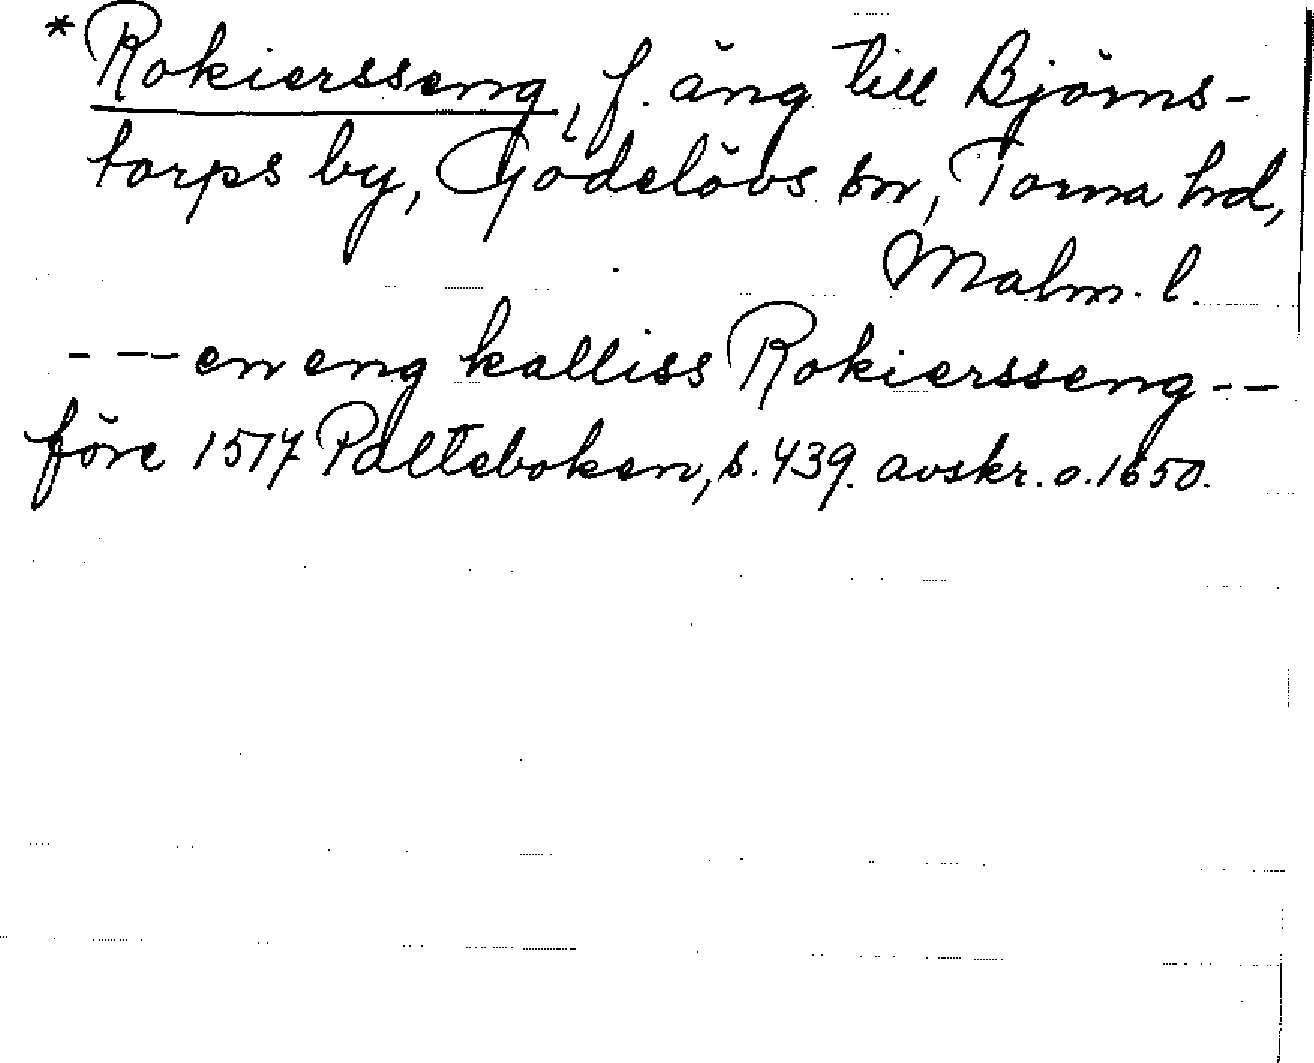 * Rokiersseng, f. äng till Björns-
torps by, Gödelövs sn, Torna hrd,
Malm. l.
- — en eng kalliss Rokiersseng --
före 1517 Palteboken, s. 439. avskr. o. 1650.